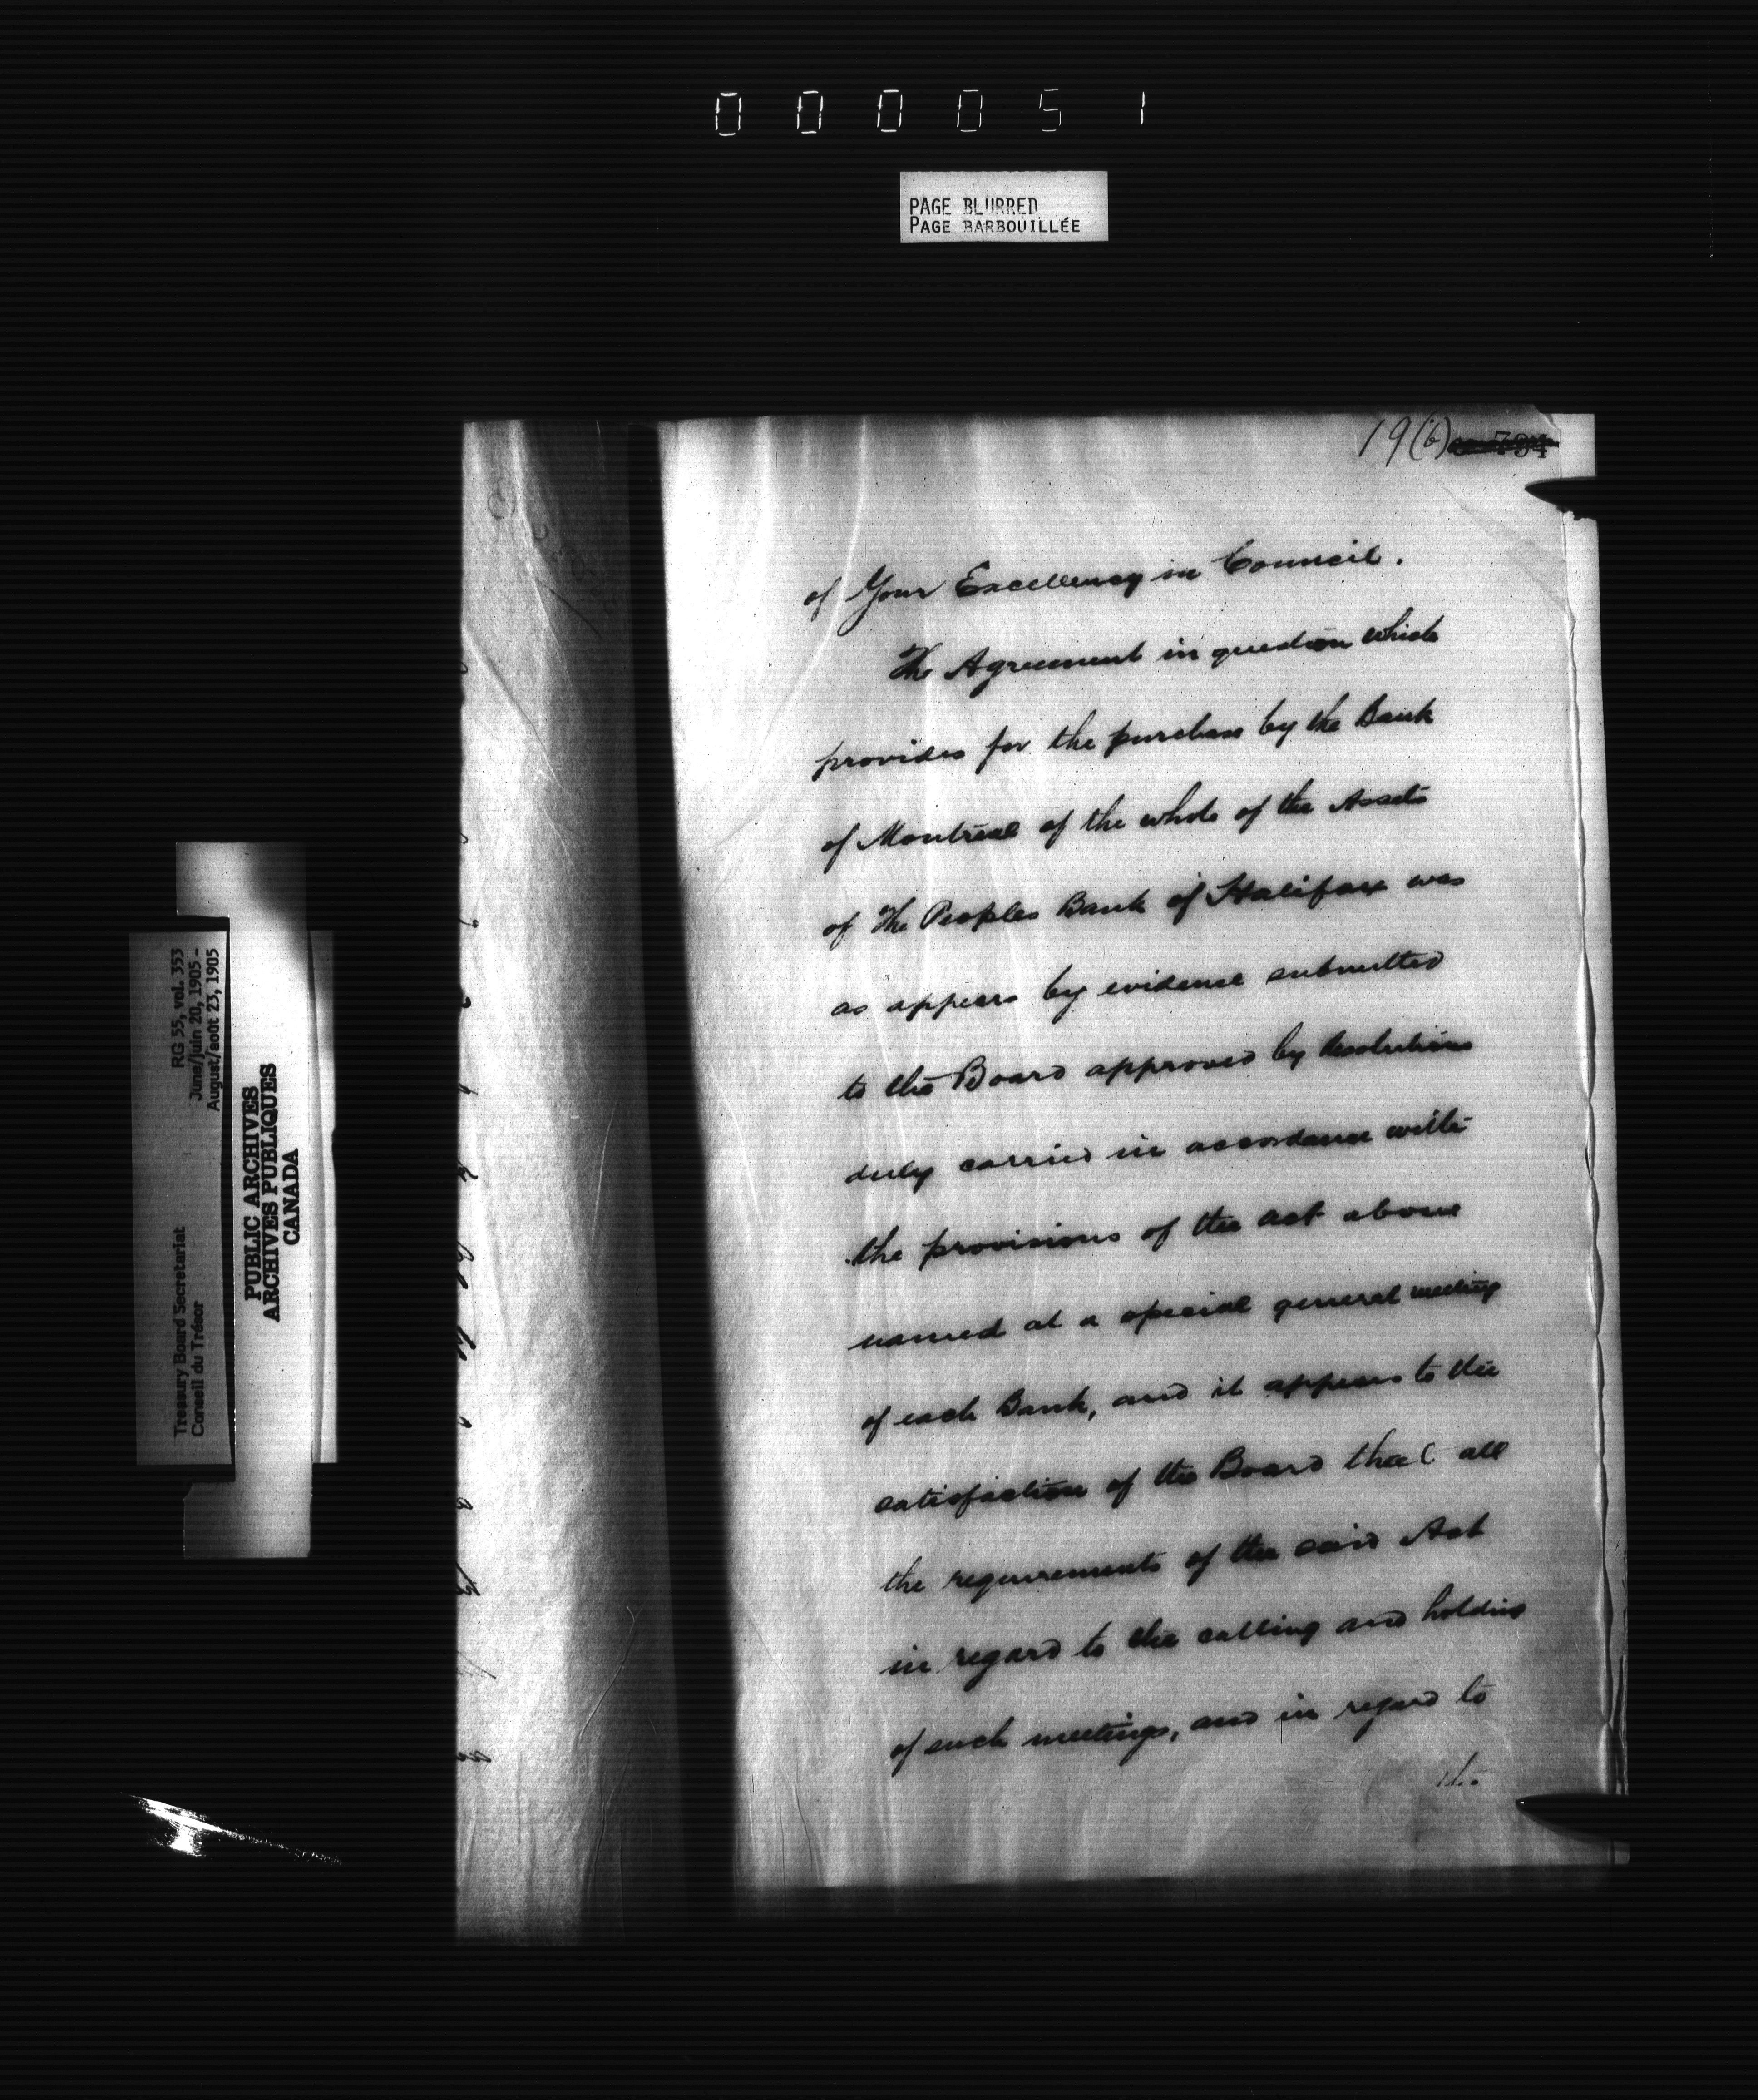 000051
PAGE BLURRED
PAGE BARBOUILLÉE
19(b)
of Your Excellency in Council.
The Agreement in question which
provides for the purchase by the Bank
of Montreal of the whole of the Assets
of The Peoples Bank of Halifax was
as appears by evidence submitted
to the Board approved by Resolutions
duly carried in accordance with
the provisions of the Act above
named at a special general meeting
of each Bank, and it appears to the
satisfaction of the Board that all
the requirements of the said Act
in regard to the calling and holding
of such meetings, and in regard to
the
RG 55, vol. 353
June/juin 20, 1905 -
August/août 23, 1905
Treasury Board Secretariat
Conseil du Trésor
PUBLIC ARCHIVES
ARCHIVES PUBLIQUES
CANADA